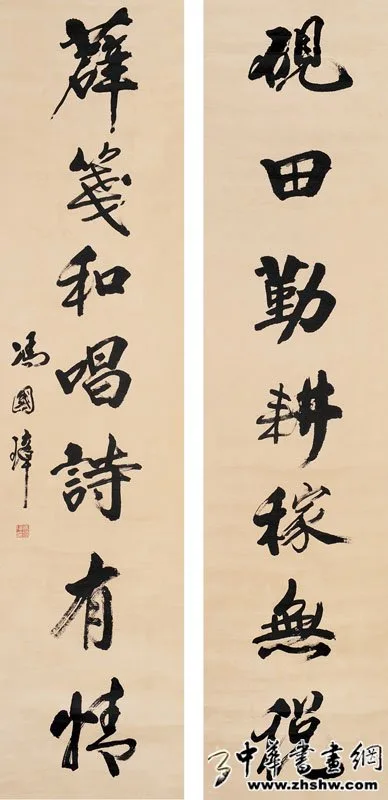 硯田勤耕稼無稅
薛箋和唱詩有情
馮國璋
中華書畫網
www.zhshw.com